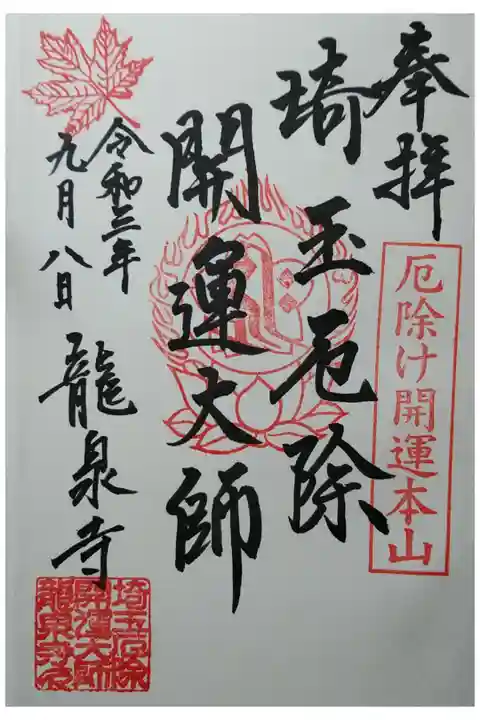 奉拝
厄除け開運本山
埼玉厄除
開運大師
令和三年
九月八日
龍泉寺
埼玉厄除
開運大師
龍泉寺印